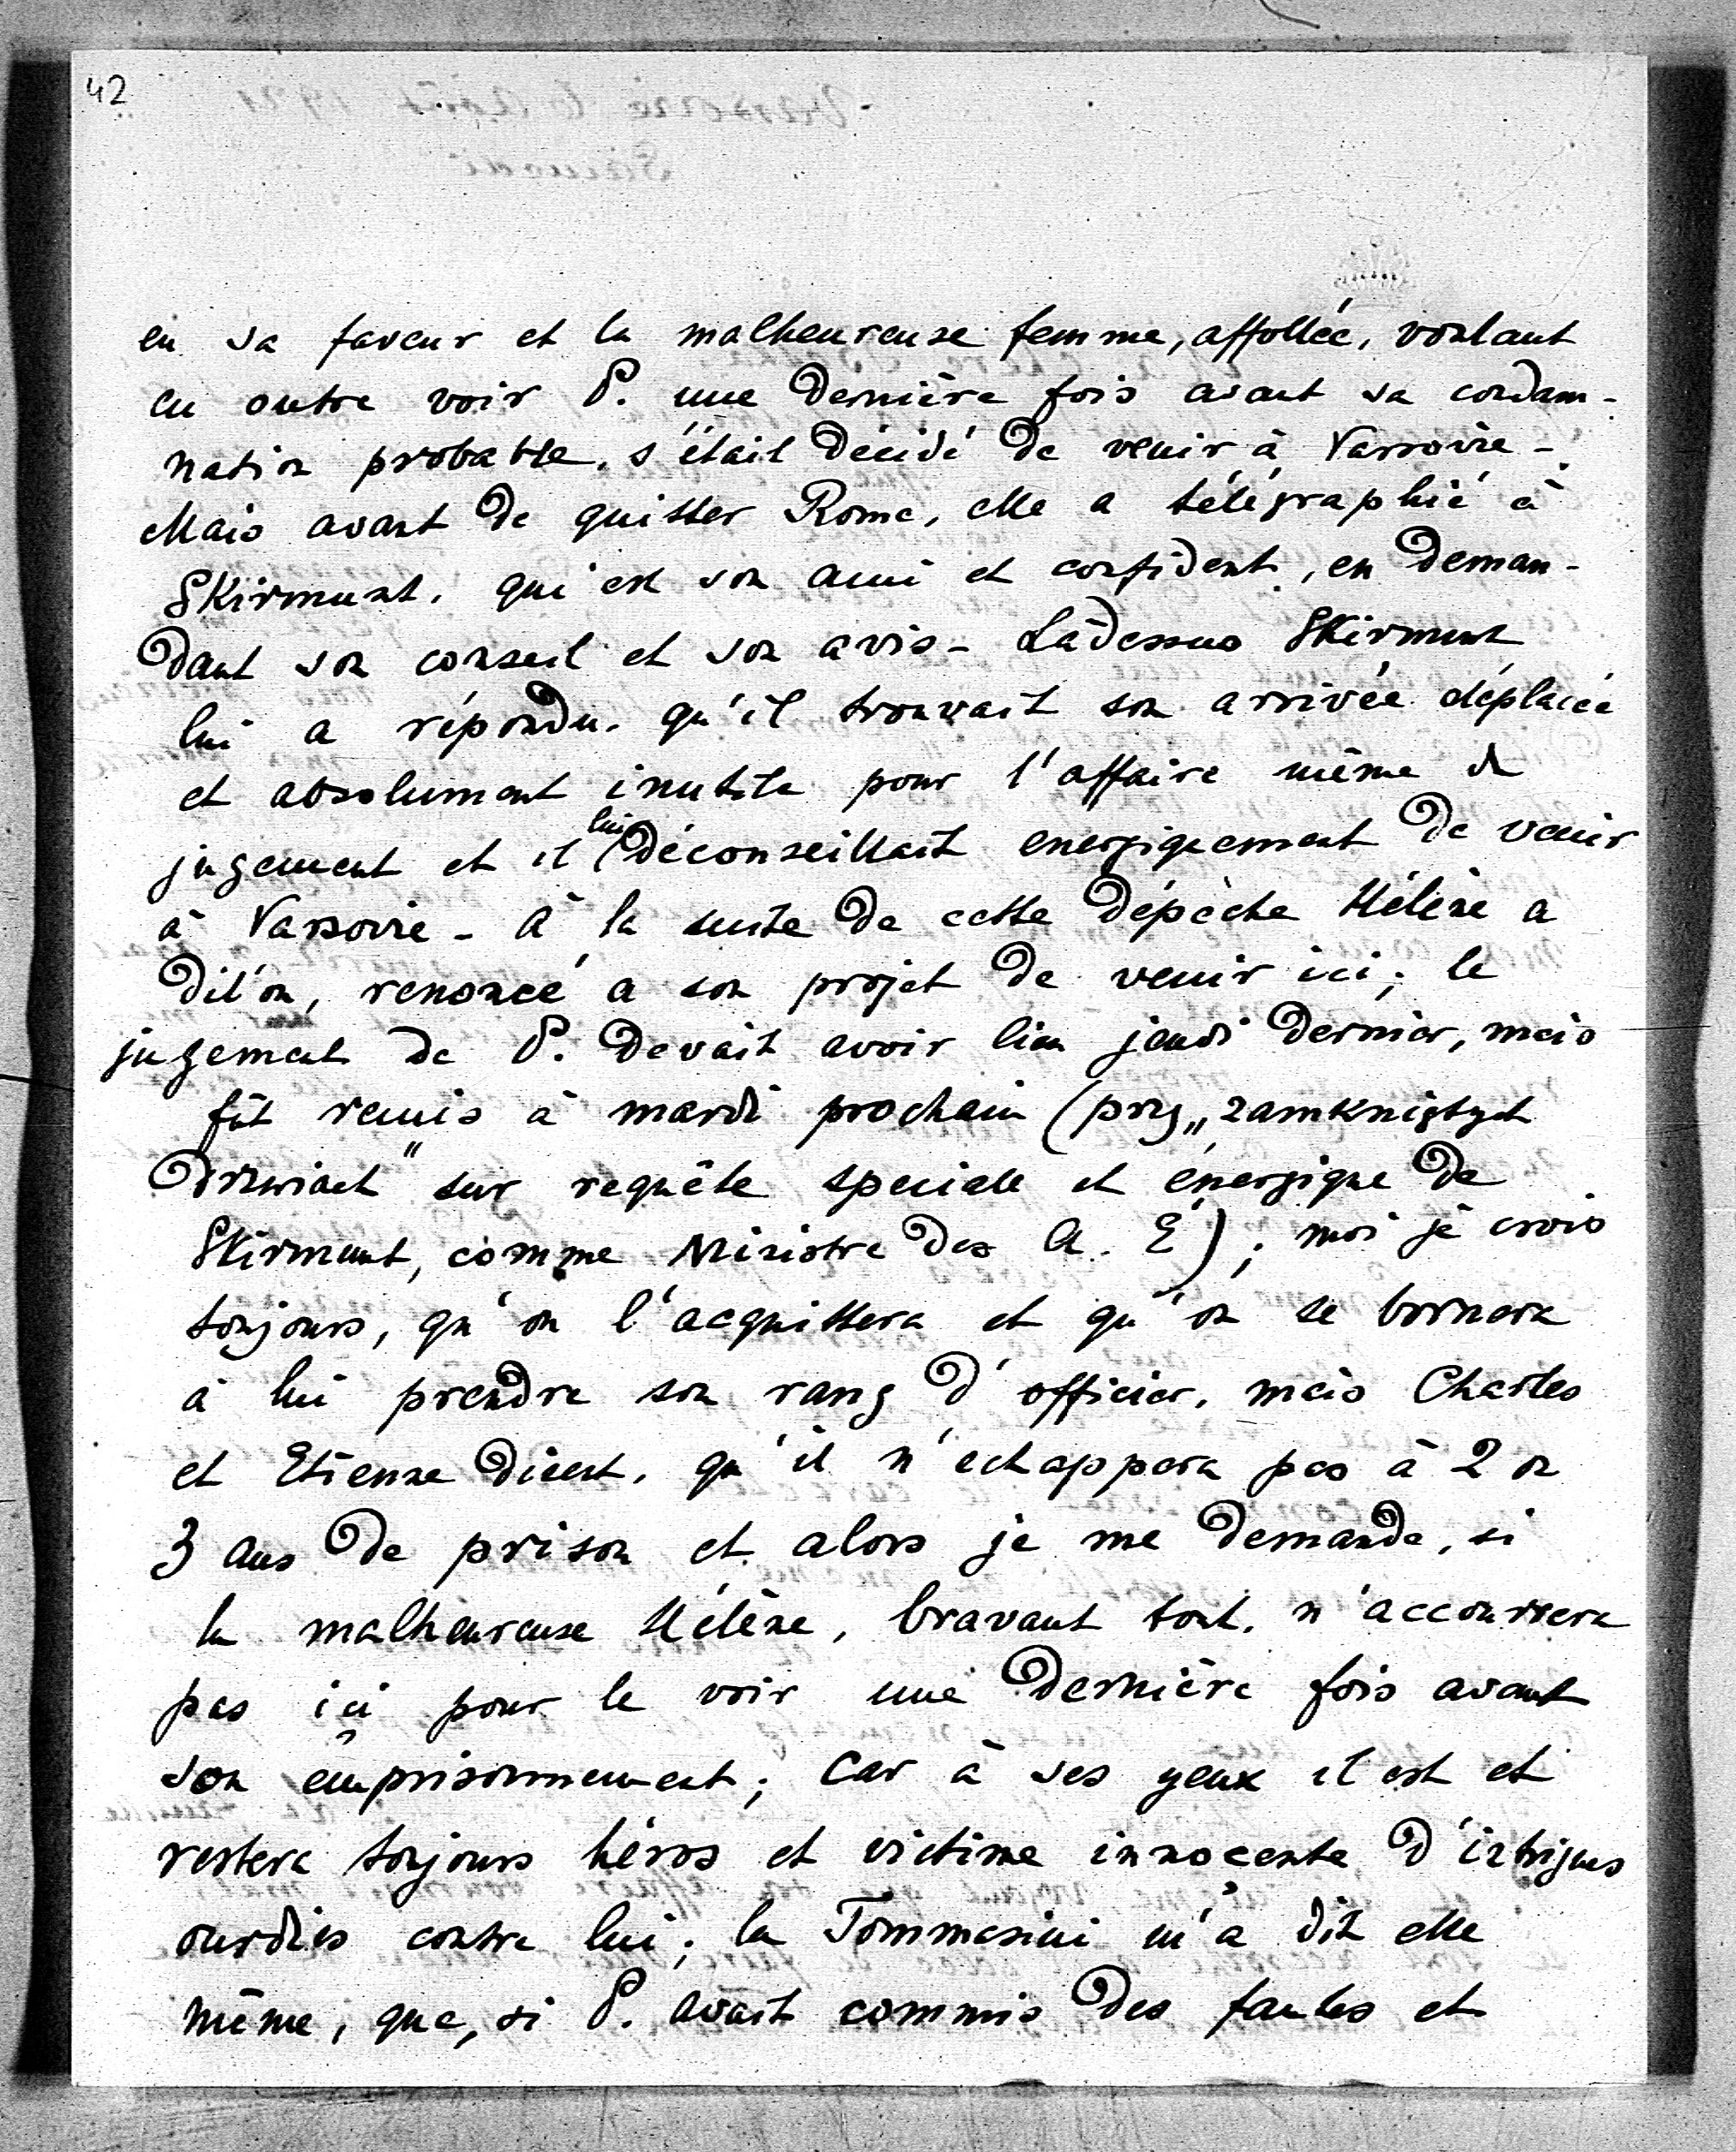 42
en sa faveur et la malheureuse femme, affollée, voulant
en outre voir P. une dernière fois avant sa condam-
nation probable, s'était décidé de venir à Varsovie -
Mais avant de quitter Rome, elle a télégraphié à
Skirmunt, qui est son ami et confident, en deman-
dant son conseil et son avis - Làdessus Skirmunt
lui a répondu, qu'il trouvait son arrivée déplacée
et absolument inutile pour l'affaire même d
jugement et il lui déconseillait energiquement de venir
à Varsovie - à la suite de cette dépèche Hélène a
dit'on, renoncé a son projet de venir ici; le
jugement de P. devait avoir lieu jeudi dernier, mais
fût remis à mardi prochain (przy „zamkniętych
drzwiach" sur requête speciale et énergique de
Skirmunt, comme Ministre des A. E); moi je crois
toujours, qu'on l'acquittera et qu'on se bornera
à lui prendre son rang d'officier, mais Charles
et Etienne disent, qu'il n'echappera pas à 2 ou
3 ans de prison et alors je me demande, si
la malheureuse Hélène, bravant tout, n'accourrera
pas ici pour le voir une dernière fois avant
son emprisonnement; car à ses yeux il est et
restera toujours héros et victime innocente d'intrigues
ourdies contre lui; la Tommasini m'a dit elle
même, que, si P. avait commis des fautes et